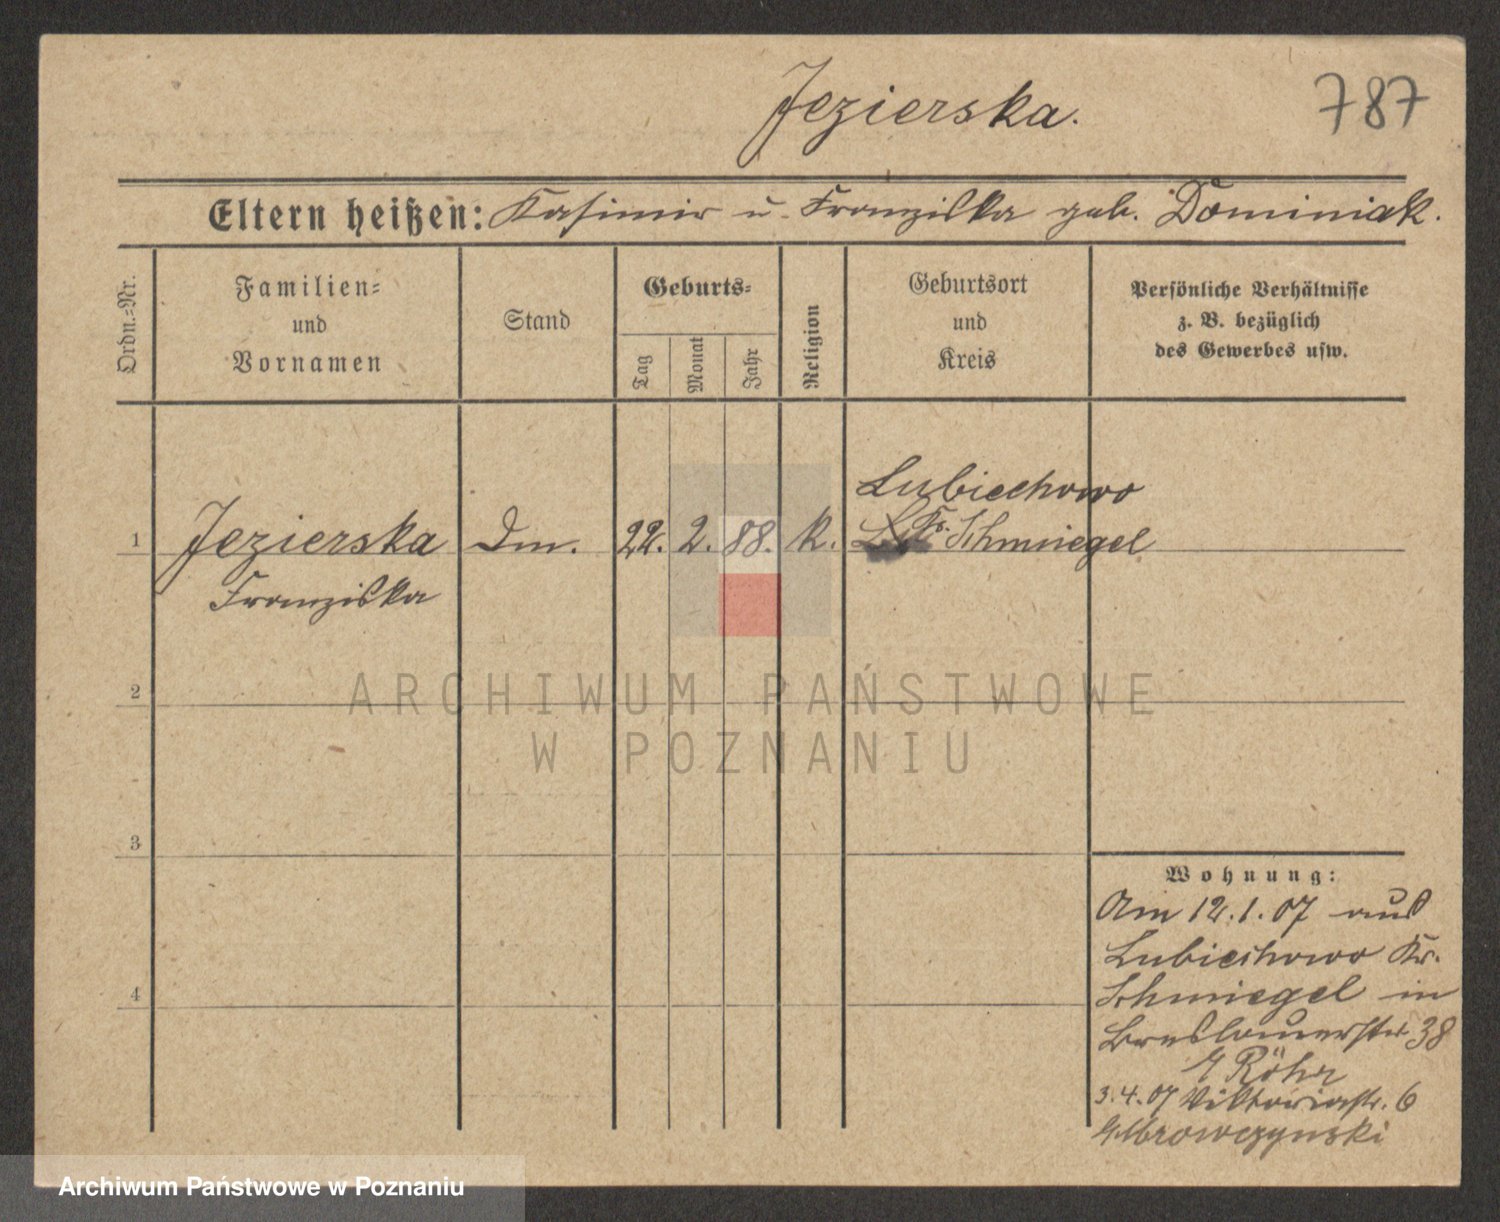 Jezierska.
787
Eltern heißen: Kasimir u. Franziska geb. Dominiak.
Ordn.=Nr.
Familien=
und
Vornamen
Stand
Geburts=
Tag
Monat
Jahr
Religion
Geburtsort
und
Kreis
Persönliche Verhältnisse
z. B. bezüglich
des Gewerbes usw.
Lubiechowo
1 Jezierska Dm. 22. 2. 88. k. Kr. Schmiegel
Franziska
2
ARCHIWUM PAŃSTWOWE
W POZNANIU
3
Wohnung:
Am 12.1.07 aus
Lubiechowo Kr.
4
Schmiegel in
Breslauerstr 38
Röhr
3.4.07 Viktoriastr. 6
Mrowczynski
Archiwum Państwowe w Poznaniu